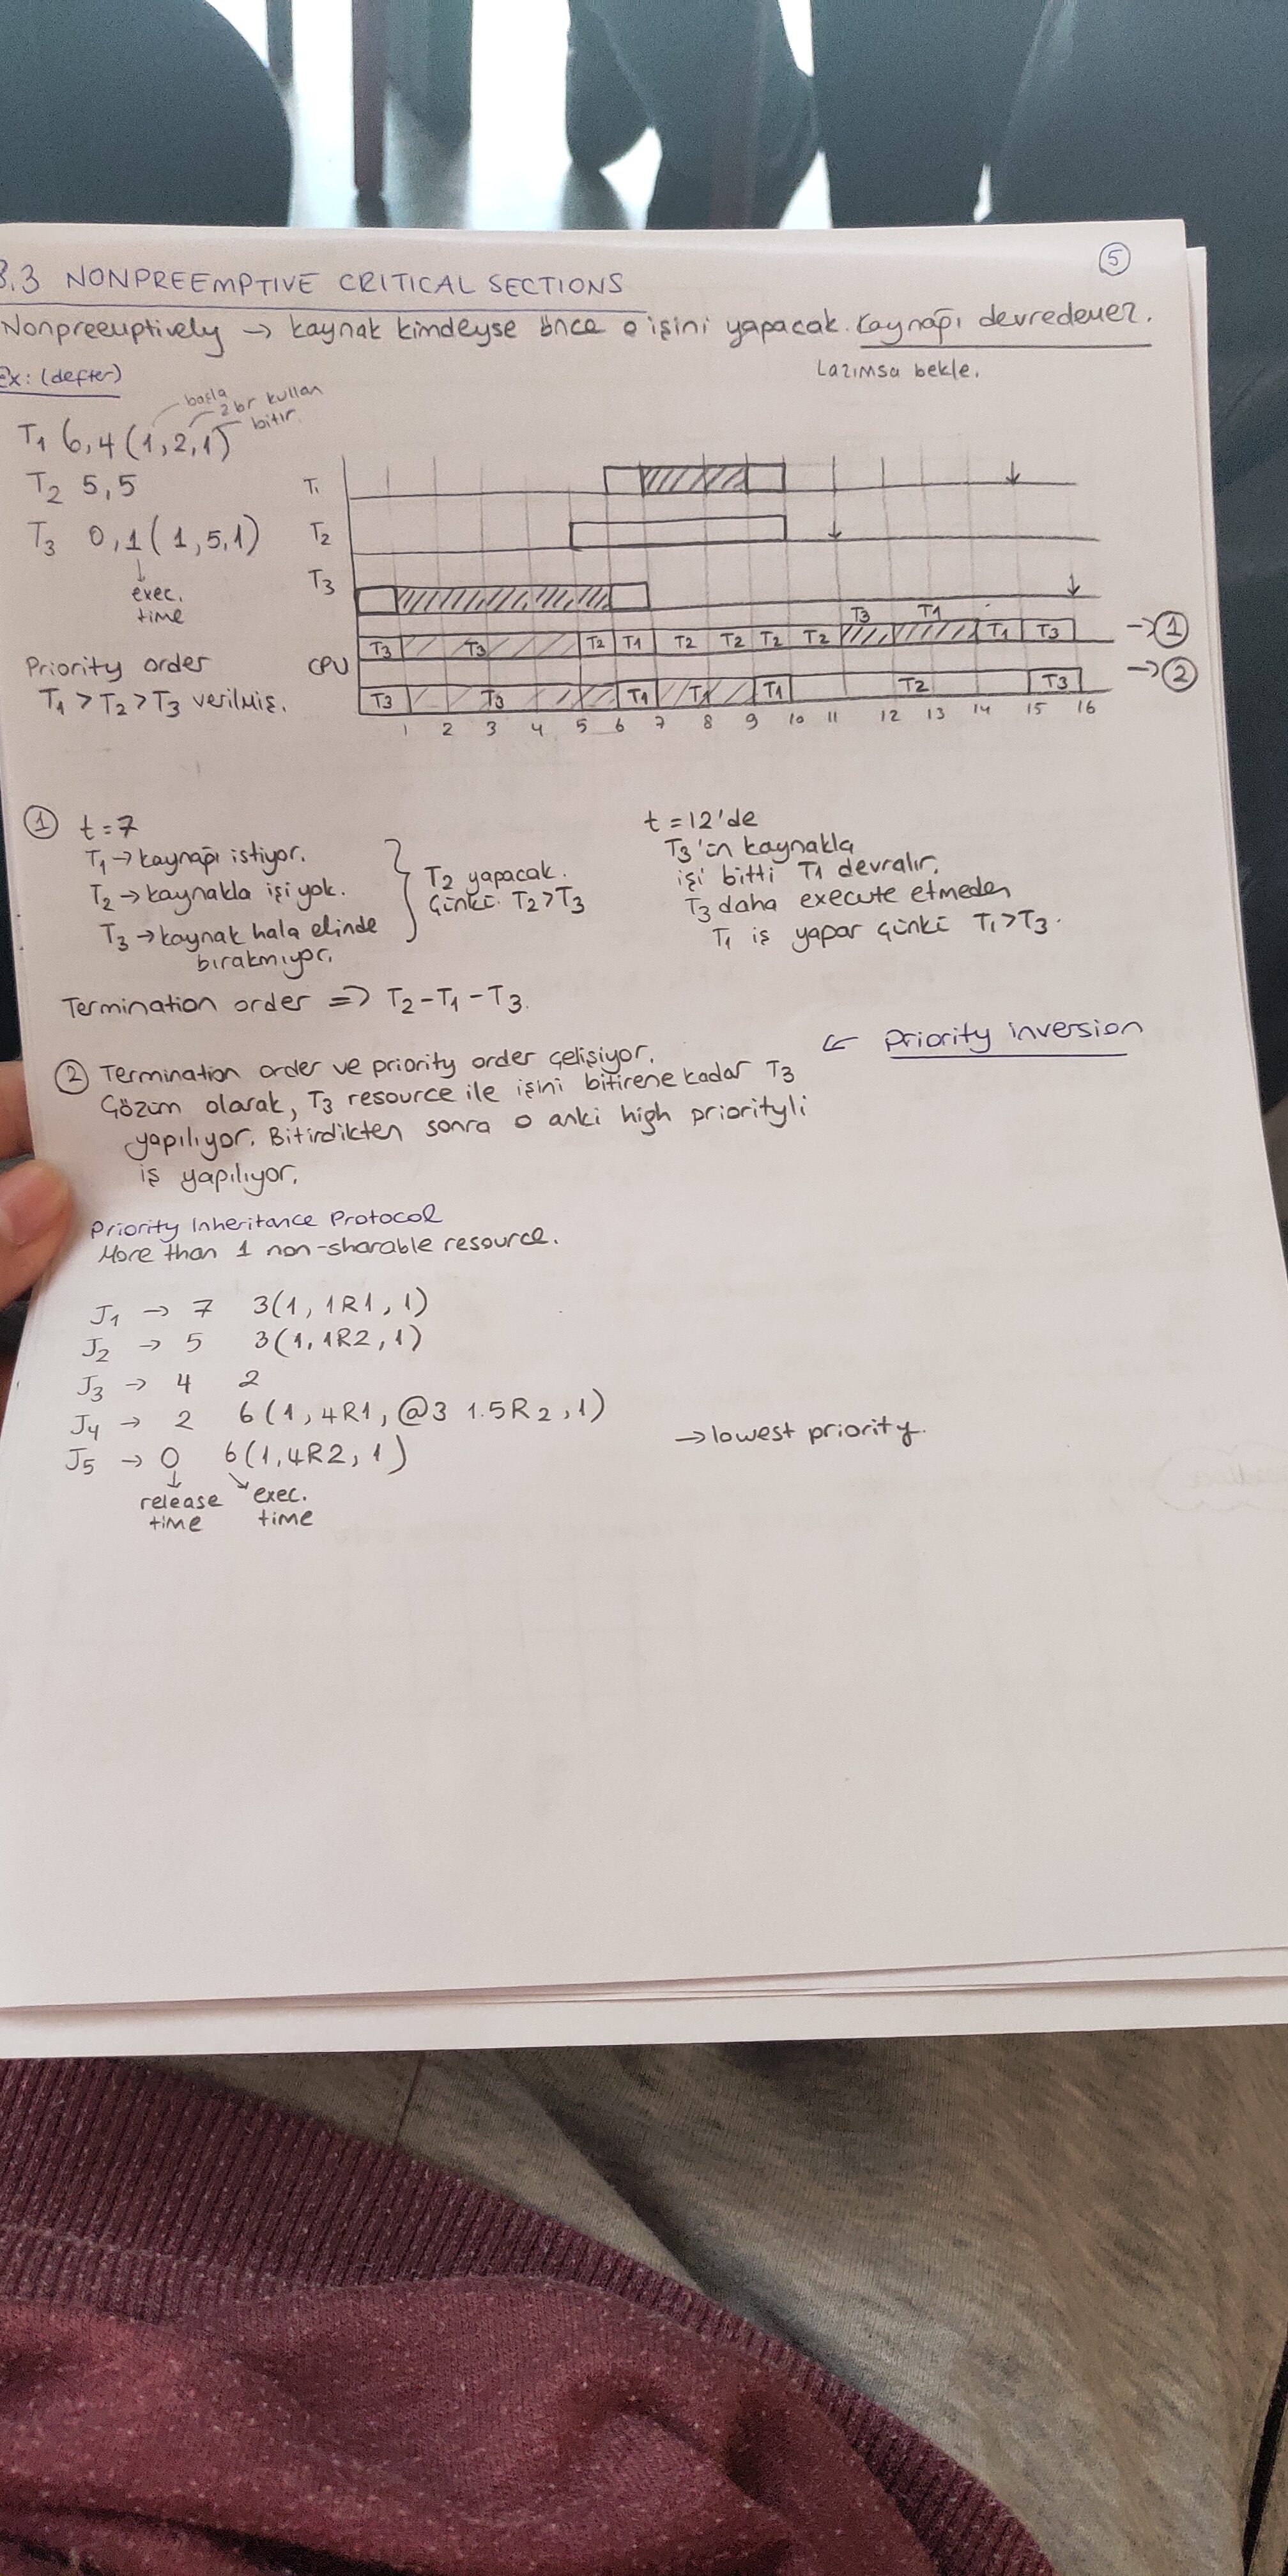 ⑤
8.3 NONPREEMPTIVE CRITICAL SECTIONS
Nonpreemptively → kaynak kimdeyse önce o işini yapacak. Kaynağı devredemez.
Lazımsa bekle.
Ex: (defter)
başla
2 br kullan
bitir.
T1 6,4 (1,2,1)
T2 5,5
T3 0,1 (1,5,1)
exec.
time
Priority order
T1 > T2 > T3 verilmiş.
T1
T2
T3
T3 T1
CPU T3 T3 T2 T1 T2 T2 T2 T2 T1 T3 → ①
T3 T3 T1 T1 T1 T2 T3 → ②
1 2 3 4 5 6 7 8 9 10 11 12 13 14 15 16
① t=7
T1 → kaynağı istiyor.
T2 → kaynakla işi yok.
T3 → kaynak hala elinde
bırakmıyor.
T2 yapacak.
Çünkü T2 > T3
t = 12'de
T3'ün kaynakla
işi bitti T1 devralır.
T3 daha execute etmeden
T1 iş yapar çünkü T1 > T3.
Termination order => T2 - T1 - T3.
② Termination order ve priority order çelişiyor. ← Priority inversion
Çözüm olarak, T3 resource ile işini bitirene kadar T3
yapılıyor. Bitirdikten sonra o anki high priorityli
iş yapılıyor.
Priority Inheritance Protocol
More than 1 non-sharable resource.
J1 → 7 3(1, 1R1, 1)
J2 → 5 3(1, 1R2, 1)
J3 → 4 2
J4 → 2 6(1, 4R1, @3 1.5R2, 1)
J5 → 0 6(1, 4R2, 1) → lowest priority.
release
time
exec.
time